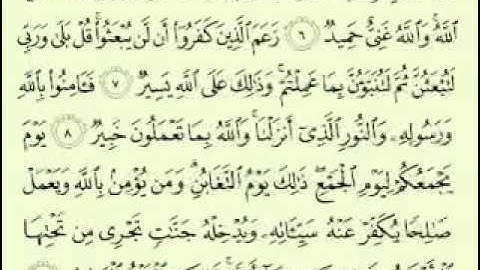 ٱللَّهُ ۚ وَٱللَّهُ غَنِىٌّ حَمِيدٌ ٦ زَعَمَ ٱلَّذِينَ كَفَرُوٓا۟ أَن لَّن يُبْعَثُوا۟ ۚ قُلْ بَلَىٰ وَرَبِّى
لَتُبْعَثُنَّ ثُمَّ لَتُنَبَّؤُنَّ بِمَا عَمِلْتُمْ ۚ وَذَٰلِكَ عَلَى ٱللَّهِ يَسِيرٌ ٧ فَـَٔامِنُوا۟ بِٱللَّهِ
وَرَسُولِهِۦ وَٱلنُّورِ ٱلَّذِىٓ أَنزَلْنَا ۚ وَٱللَّهُ بِمَا تَعْمَلُونَ خَبِيرٌ ٨ يَوْمَ
يَجْمَعُكُمْ لِيَوْمِ ٱلْجَمْعِ ۖ ذَٰلِكَ يَوْمُ ٱلتَّغَابُنِ ۗ وَمَن يُؤْمِنۢ بِٱللَّهِ وَيَعْمَلْ
صَـٰلِحًا يُكَفِّرْ عَنْهُ سَيِّـَٔاتِهِۦ وَيُدْخِلْهُ جَنَّـٰتٍ تَجْرِى مِن تَحْتِهَا